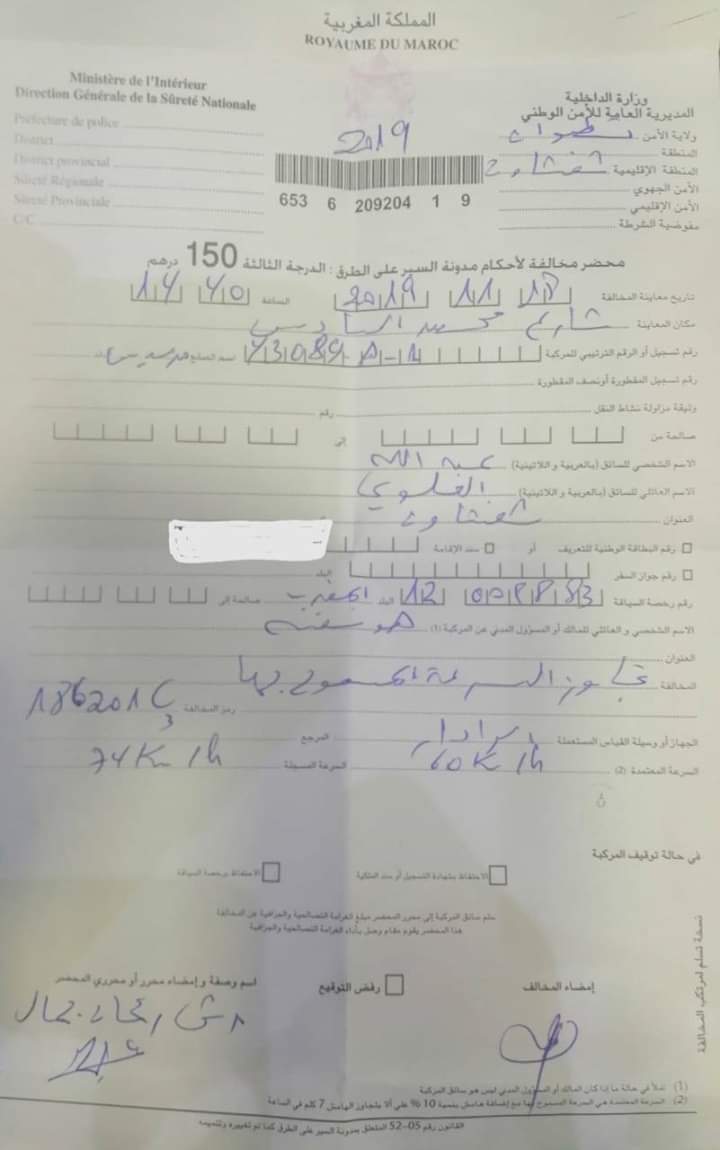 المملكة المغربية
ROYAUME DU MAROC
Ministère de l'Intérieur
Direction Générale de la Sûreté Nationale
Préfecture de police
District
District provincial
Sûreté Régionale
Sûreté Provinciale
C/C
وزارة الداخلية
المديرية العامة للأمن الوطني
ولاية الأمن تطوان
المنطقة
المنطقة الإقليمية شفشاون
الأمن الجهوي
الأمن الإقليمي
مفوضية الشرطة
2019
653 6 209204 1 9
محضر مخالفة لأحكام مدونة السير على الطرق : الدرجة الثالثة 150 درهم
تاريخ معاينة المخالفة 18 11 2019 الساعة
مكان المعاينة شارع محمد السادس
رقم تسجيل أو الرقم الترتيبي للمركبة
رقم تسجيل المقطورة أو نصف المقطورة
وثيقة مزاولة نشاط النقل رقم
صالحة من إلى
الاسم الشخصي للسائق (بالعربية و اللاتينية) عبد الله
الاسم العائلي للسائق (بالعربية و اللاتينية)
العنوان شفشاون
رقم البطاقة الوطنية للتعريف أو سند الإقامة
رقم جواز السفر البلد
رقم رخصة السياقة البلد المغرب صالحة إلى
الاسم الشخصي و العائلي للمالك أو المسؤول المدني عن المركبة (1) هو نفسه
العنوان
المخالفة تجاوز السرعة المسموح بها
رمز المخالفة
الجهاز أو وسيلة القياس المستعملة رادار المرجع
السرعة المعتمدة (2) 60 K/h السرعة المسجلة 74 K/h
في حالة توقيف المركبة
الاحتفاظ بشهادة التسجيل أو سند الملكية الاحتفاظ برخصة السياقة
سلم سائق المركبة إلى محرر المحضر مبلغ الغرامة التصالحية والجزافية عن المخالفة
هذا المحضر يقوم مقام وصل بأداء الغرامة التصالحية والجزافية
نسخة تسلم لمرتكب المخالفة
إمضاء المخالف
رفض التوقيع
اسم وصفة و إمضاء محرر أو محرري المحضر
(1) تملأ في حالة ما إذا كان المالك أو المسؤول المدني ليس هو سائق المركبة
(2) السرعة المعتمدة هي السرعة المسموح بها مع إضافة هامش بنسبة 10 % على ألا يتجاوز الهامش 7 كلم في الساعة
القانون رقم 05-52 المتعلق بمدونة السير على الطرق كما تم تغييره وتتميمه